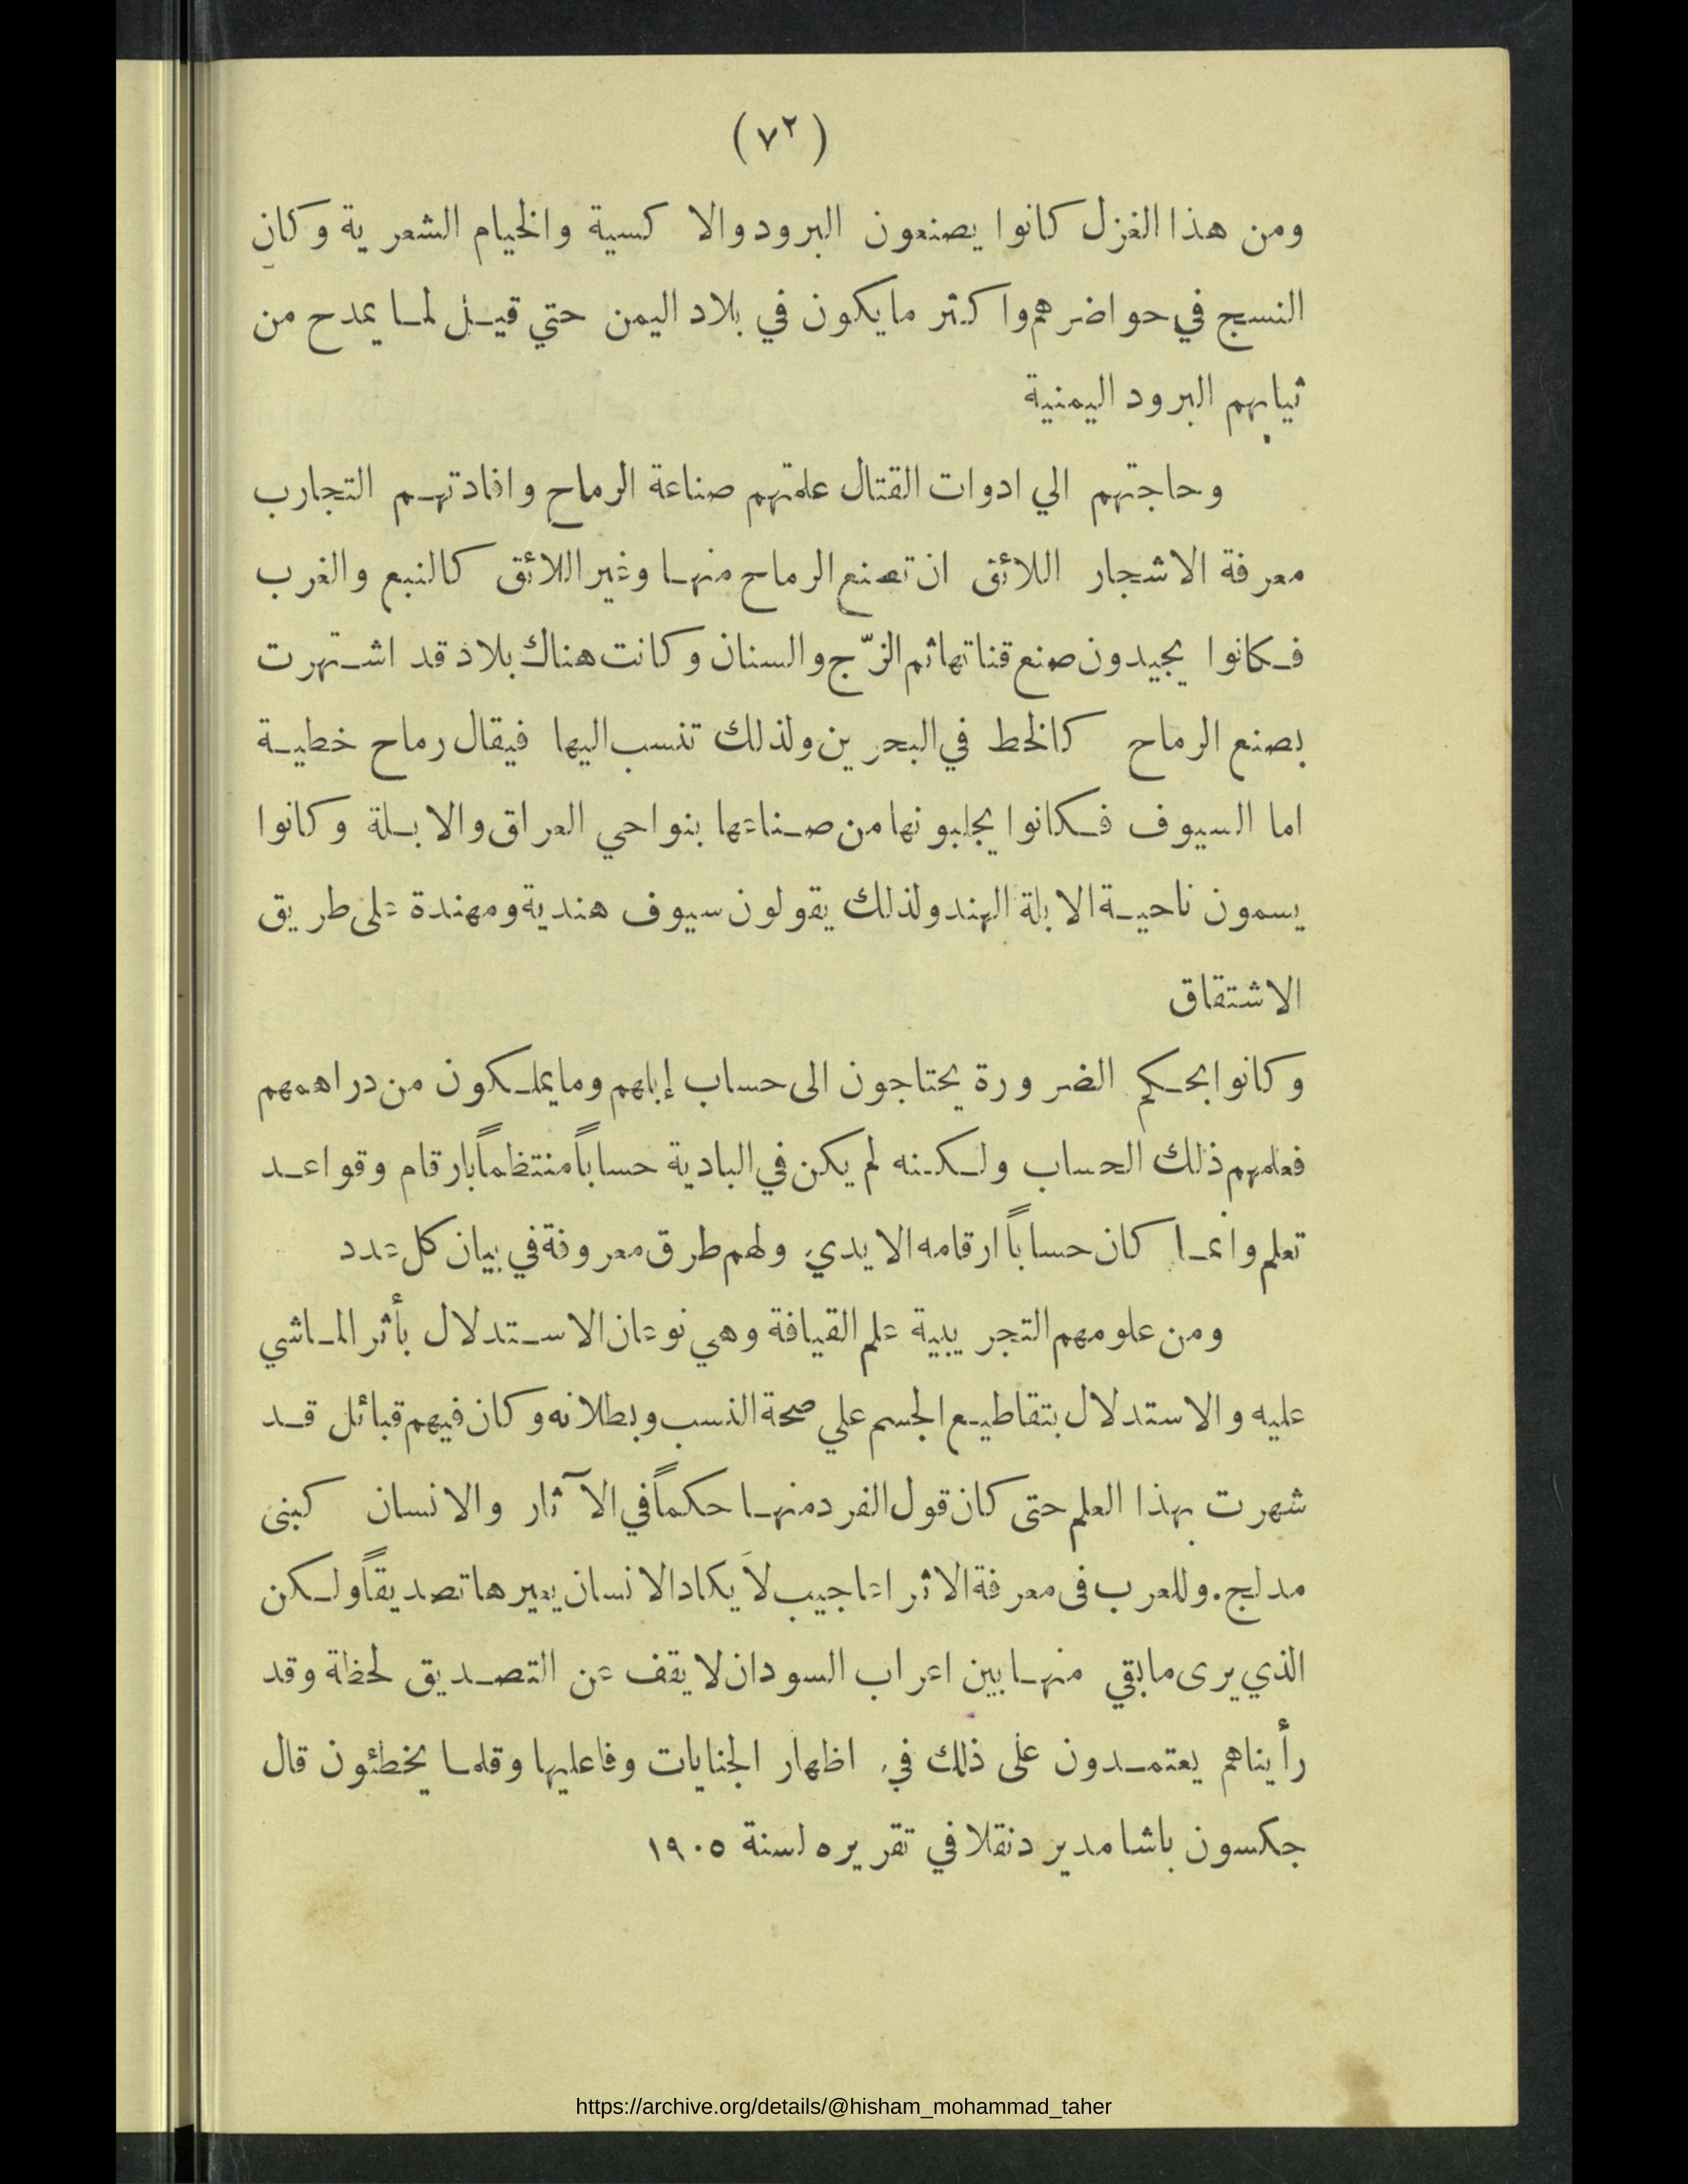 (٧٢)
ومن هذا الغزل كانوا يصنعون البرود والاكسية والخيام الشعرية وكان
النسج في حواضرهم واكثر مايكون في بلاد اليمن حتي قيل لما يمدح من
ثيابهم البرود اليمنية
وحاجتهم الي ادوات القتال علمتهم صناعة الرماح وافادتهم التجارب
معرفة الاشجار اللائق ان تصنع الرماح منها وغير اللائق كالنبع والغرب
فكانوا يجيدون صنع قناتها ثم الزّج والسنان وكانت هناك بلاد قد اشتهرت
بصنع الرماح كالخط في البحرين ولذلك تنسب اليها فيقال رماح خطية
اما السيوف فكانوا يجلبونها من صناعها بنواحي العراق والابلة وكانوا
يسمون ناحية الابلة الهند ولذلك يقولون سيوف هندية ومهندة على طريق
الاشتقاق
وكانوا بحكم الضرورة يحتاجون الى حساب إبلهم وما يملكون من دراهمهم
فعلمهم ذلك الحساب ولكنه لم يكن في البادية حساباً منتظماً بارقام وقواعد
تعلم وانما كان حساباً ارقامه الايدي ولهم طرق معروفة في بيان كل عدد
ومن علومهم التجريبية علم القيافة وهي نوعان الاستدلال بأثر الماشي
عليه والاستدلال بتقاطيع الجسم علي صحة النسب وبطلانه وكان فيهم قبائل قد
شهرت بهذا العلم حتى كان قول الفرد منها حكماً في الآثار والانسان كبنى
مدلج. وللعرب فى معرفة الاثر اعاجيب لاَ يكاد الانسان يعيرها تصديقاً ولكن
الذي يرى مابقي منها بين اعراب السودان لا يقف عن التصديق لحظة وقد
رأيناهم يعتمدون على ذلك في اظهار الجنايات وفاعليها وقلما يخطئون قال
جكسون باشا مدير دنقلا في تقريره لسنة ١٩٠٥
https://archive.org/details/@hisham_mohammad_taher